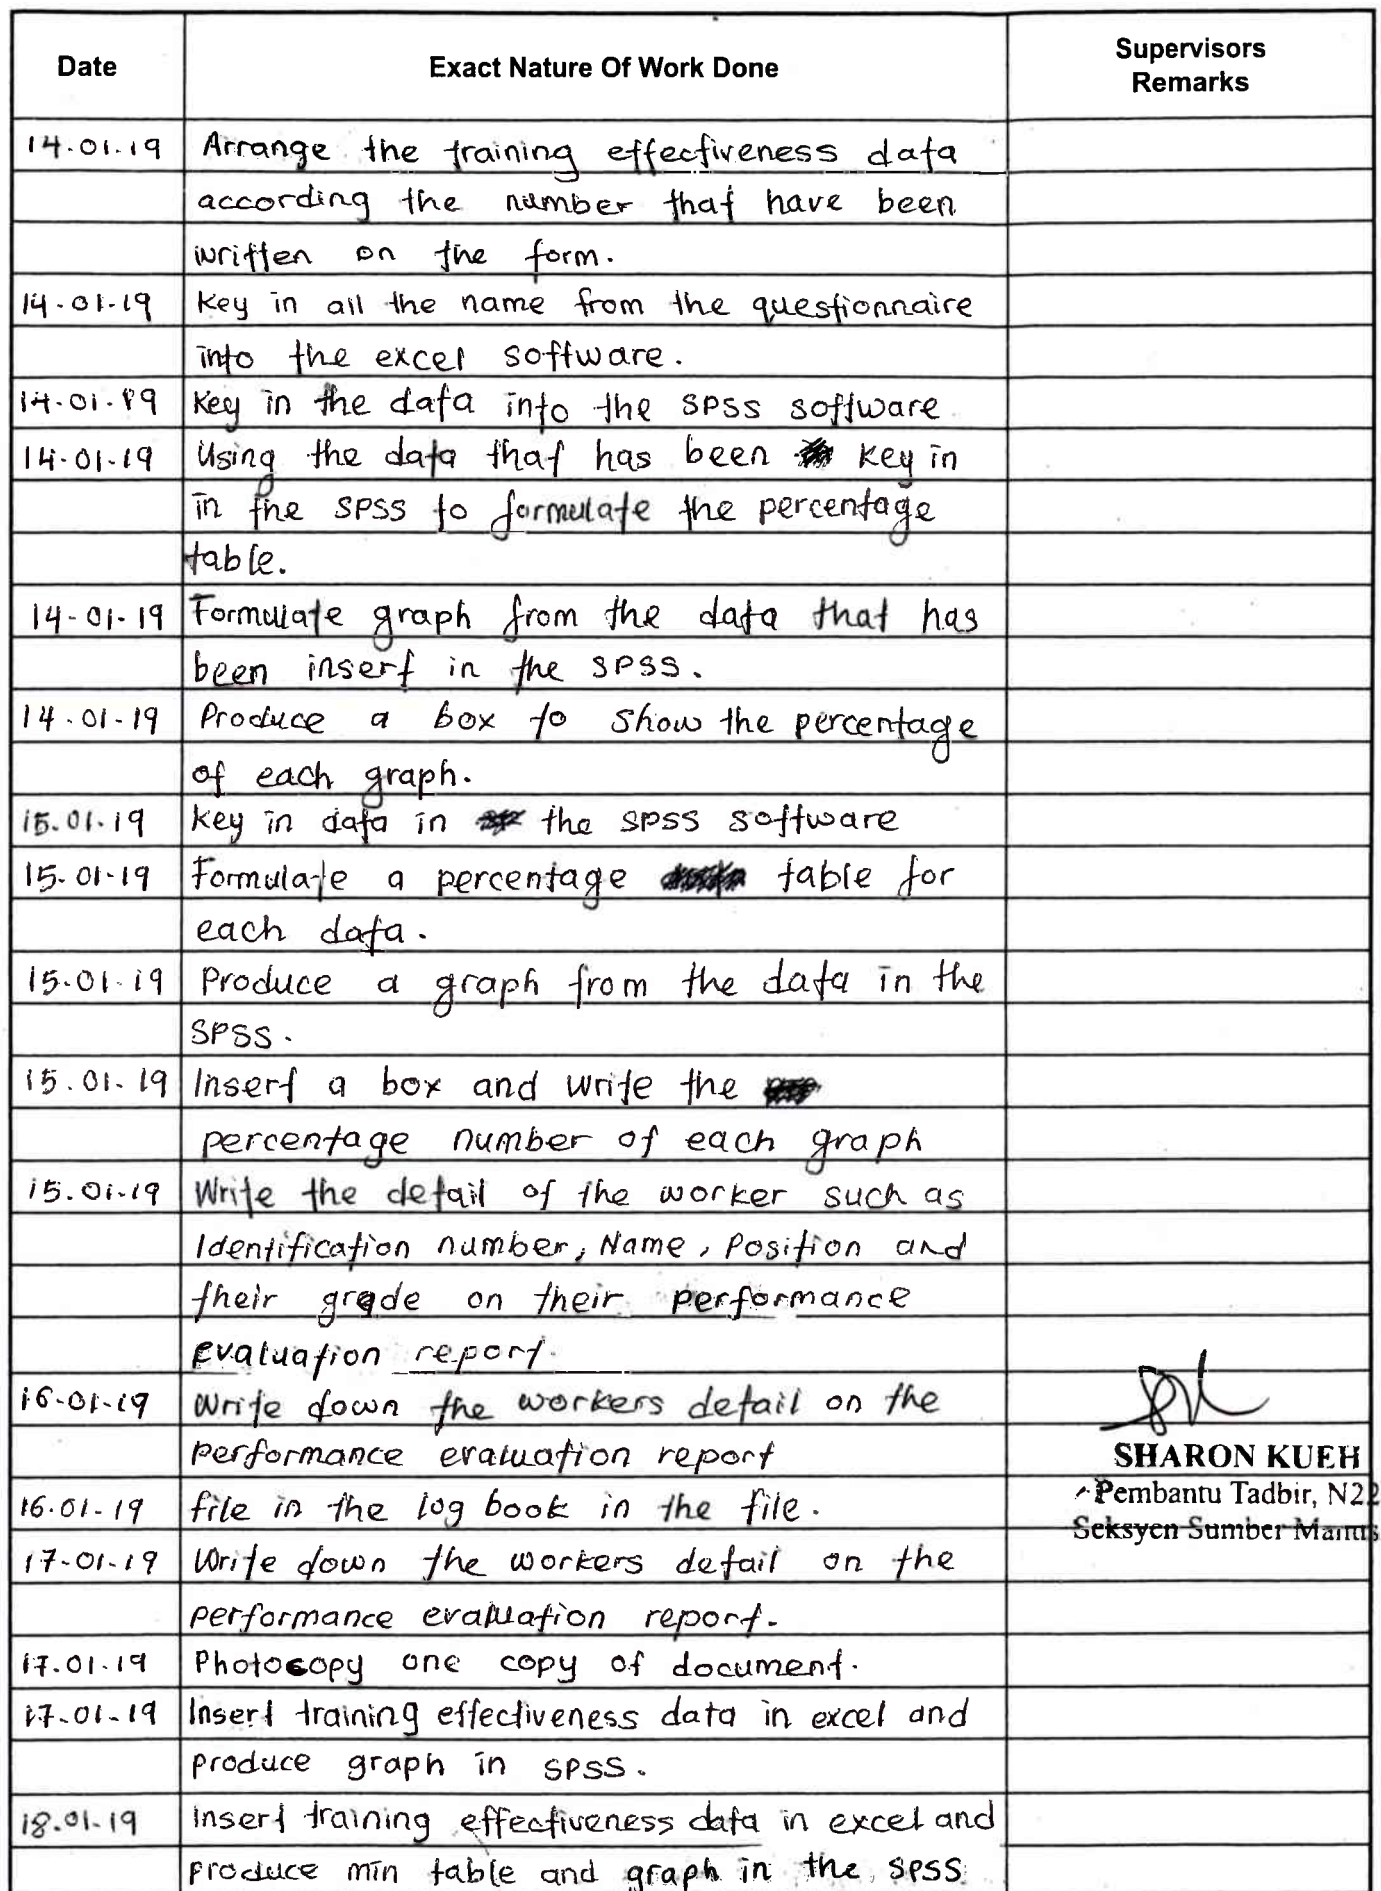 Date Exact Nature Of Work Done Supervisors
Remarks
14.01.19 Arrange the training effectiveness data
according the number that have been
written on the form.
14-01-19 Key in all the name from the questionnaire
into the excel software.
14-01-19 Key in the data into the SPSS software
14-01-19 Using the data that has been key in
in the SPSS to formulate the percentage
table.
14-01-19 Formulate graph from the data that has
been insert in the SPSS.
14-01-19 Produce a box to show the percentage
of each graph.
15.01.19 Key in data in the SPSS software
15-01-19 Formulate a percentage table for
each data.
15-01-19 Produce a graph from the data in the
SPSS.
15.01-19 Insert a box and write the
percentage number of each graph
15.01-19 Write the detail of the worker such as
Identification number, Name, Position and
their grade on their performance
evaluation report.
16-01-19 Write down the workers detail on the
performance evaluation report
SHARON KUEH
16.01-19 file in the log book in the file.
Pembantu Tadbir, N22
Seksyen Sumber
17-01-19 Write down the workers detail on the
performance evaluation report.
17.01.19 Photocopy one copy of document.
17-01-19 Insert training effectiveness data in excel and
produce graph in SPSS.
18.01-19 Insert training effectiveness data in excel and
produce min table and graph in the SPSS